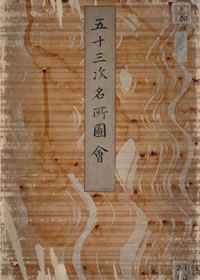 五十三次名所圖會